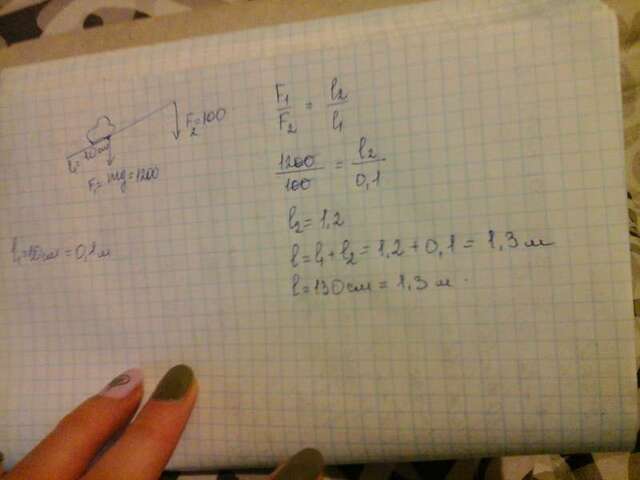 F₂=100
l₁=10см
F₁=mg=1200
l₁=10см=0,1м
F₁/F₂ = l₂/l₁
1200/100 = l₂/0,1
l₂=1,2
l=l₁+l₂=1,2+0,1=1,3м
l=130см=1,3м.